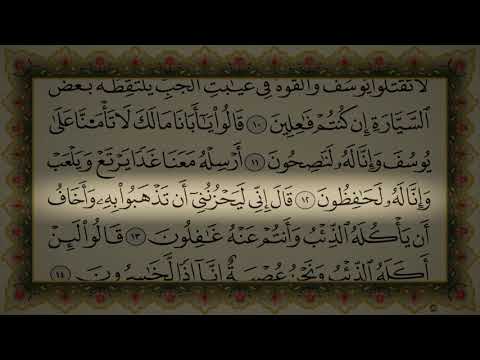 لَا تَقْتُلُوا۟ يُوسُفَ وَأَلْقُوهُ فِى غَيَـٰبَتِ ٱلْجُبِّ يَلْتَقِطْهُ بَعْضُ
ٱلسَّيَّارَةِ إِن كُنتُمْ فَـٰعِلِينَ ١٠ قَالُوا۟ يَـٰٓأَبَانَا مَالَكَ لَا تَأْمَ۫نَّا عَلَىٰ
يُوسُفَ وَإِنَّا لَهُۥ لَنَـٰصِحُونَ ١١ أَرْسِلْهُ مَعَنَا غَدًا يَرْتَعْ وَيَلْعَبْ
وَإِنَّا لَهُۥ لَحَـٰفِظُونَ ١٢ قَالَ إِنِّى لَيَحْزُنُنِىٓ أَن تَذْهَبُوا۟ بِهِۦ وَأَخَافُ
أَن يَأْكُلَهُ ٱلذِّئْبُ وَأَنتُمْ عَنْهُ غَـٰفِلُونَ ١٣ قَالُوا۟ لَئِنْ
أَكَلَهُ ٱلذِّئْبُ وَنَحْنُ عُصْبَةٌ إِنَّآ إِذًا لَّخَـٰسِرُونَ ١٤